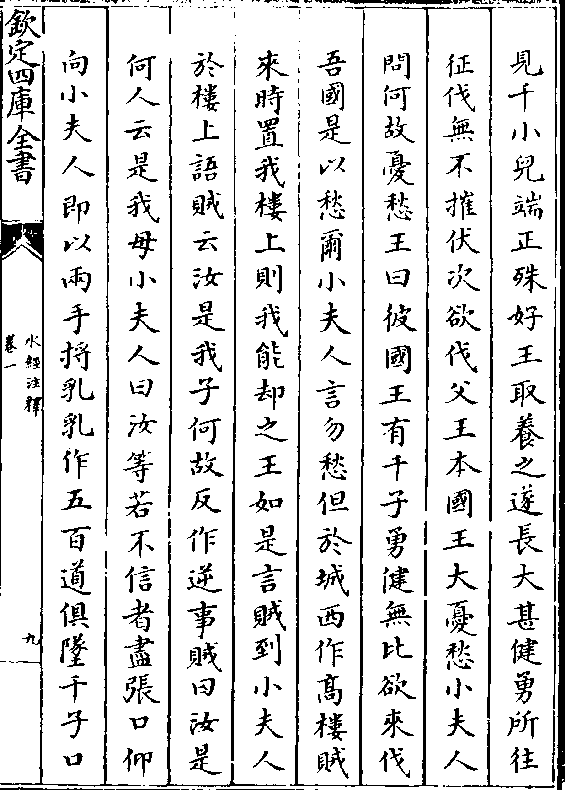 見千小兒端正殊好王取養之遂長大甚健勇所往
征伐無不摧伏次欲伐父王本國王大憂愁小夫人
問何故憂愁王曰彼國王有千子勇健無比欲來伐
吾國是以愁爾小夫人言勿愁但於城西作髙樓賊
來時置我樓上則我能却之王如是言賊到小夫人
於樓上語賊云汝是我子何故反作逆事賊曰汝是
何人云是我母小夫人曰汝等若不信者盡張口仰
向小夫人即以兩手捋乳乳作五百道俱墜千子口
欽定四庫全書
水經注釋
卷一
九